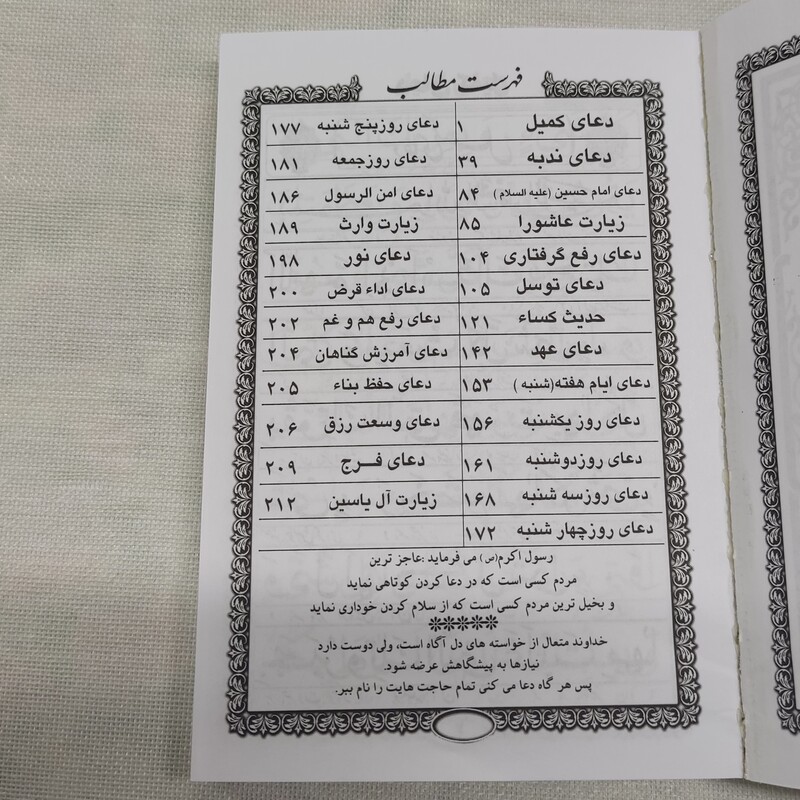 فهرست مطالب
دعای کمیل ۱
دعای ندبه ۳۹
دعای امام حسین (علیه السلام) ۸۴
زیارت عاشورا ۸۵
دعای رفع گرفتاری ۱۰۴
دعای توسل ۱۰۵
حدیث کساء ۱۲۱
دعای عهد ۱۴۲
دعای ایام هفته(شنبه) ۱۵۳
دعای روز یکشنبه ۱۵۶
دعای روزدوشنبه ۱۶۱
دعای روزسه شنبه ۱۶۸
دعای روزچهار شنبه ۱۷۲
دعای روزپنج شنبه ۱۷۷
دعای روزجمعه ۱۸۱
دعای امن الرسول ۱۸۶
زیارت وارث ۱۸۹
دعای نور ۱۹۸
دعای اداء قرض ۲۰۰
دعای رفع هم و غم ۲۰۲
دعای آمرزش گناهان ۲۰۴
دعای حفظ بناء ۲۰۵
دعای وسعت رزق ۲۰۶
دعای فـرج ۲۰۹
زیارت آل یاسین ۲۱۲
رسول اکرم(ص) می فرماید :عاجز ترین
مردم کسی است که در دعا کردن کوتاهی نماید
و بخیل ترین مردم کسی است که از سلام کردن خوداری نماید
خداوند متعال از خواسته های دل آگاه است، ولی دوست دارد
نیازها به پیشگاهش عرضه شود.
پس هر گاه دعا می کنی تمام حاجت هایت را نام ببر.